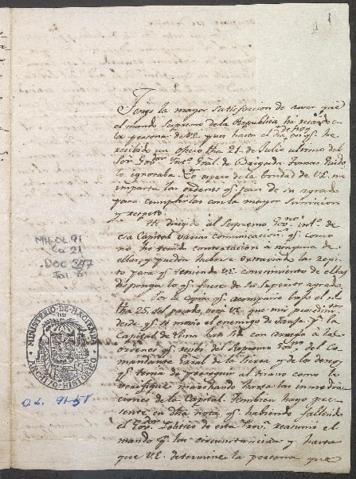 1
Tengo la mayor satisfaccion de saver que
el mando Supremo de la Republica ha recaido en
la persona de V.E. pues hasta el dia de hoy en qe. he
recibido un oficio fha. 21. de Julio ultimo del
Sor. Gral. de Brigada Tomas
lo ignoraba. Yo espero de la bondad de V.E. me
imparta las ordenes qe. sean de su agrado
para cumplirlas con la mayor sumicion
y respeto.
He dirijido al Supremo Gno. de
esa Capital varias comunicaciones qe. como
no he tenido contestacion á ninguna de
ellas, y puedan haberse extraviado las repito
para qe. teniendo V.E. conocimiento de ellas
disponga lo qe. fuere de su Superior agrado.
Por la copia qe. acompaño bajo el No.
25. del pasado, vera V.E. que mi
desde qe. se movió el enemigo de Jauja á la
Capital de Lima
ordenes qe. del Supremo Gno. del Co-
mandante Gral. de la Sierra y de los deseos
qe. tenia de perseguir al tirano como lo
verifiqué marchando hasta las inmedia-
ciones de la Capital. Tambien hago pre-
sente en dha nota, qe. habiendo fallecido
el Gor. Politico de esta Prov. reasumi el
mando pr. las circunstancias y hasta
que V.E. determine la persona que
MH-OL 91
Ca. 21
Doc 347
Fol. 81
MINISTERIO DE HACIENDA
ARCHIVO HISTORICO
O.L. 91-51